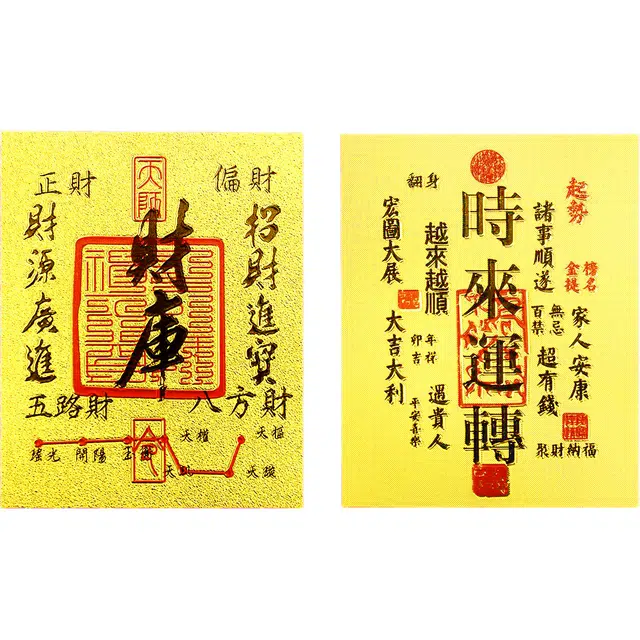 正財
天師
偏財
財源廣進
財庫
招財進寶
五路財
八方財
瑤光
開陽
天權
天樞
天璇
翻身
時來運轉
起勢
金榜提名
諸事順遂
家人安康
百無禁忌
超有錢
聚財納福
越來越順
卯年吉祥
遇貴人
平安喜樂
宏圖大展
大吉大利